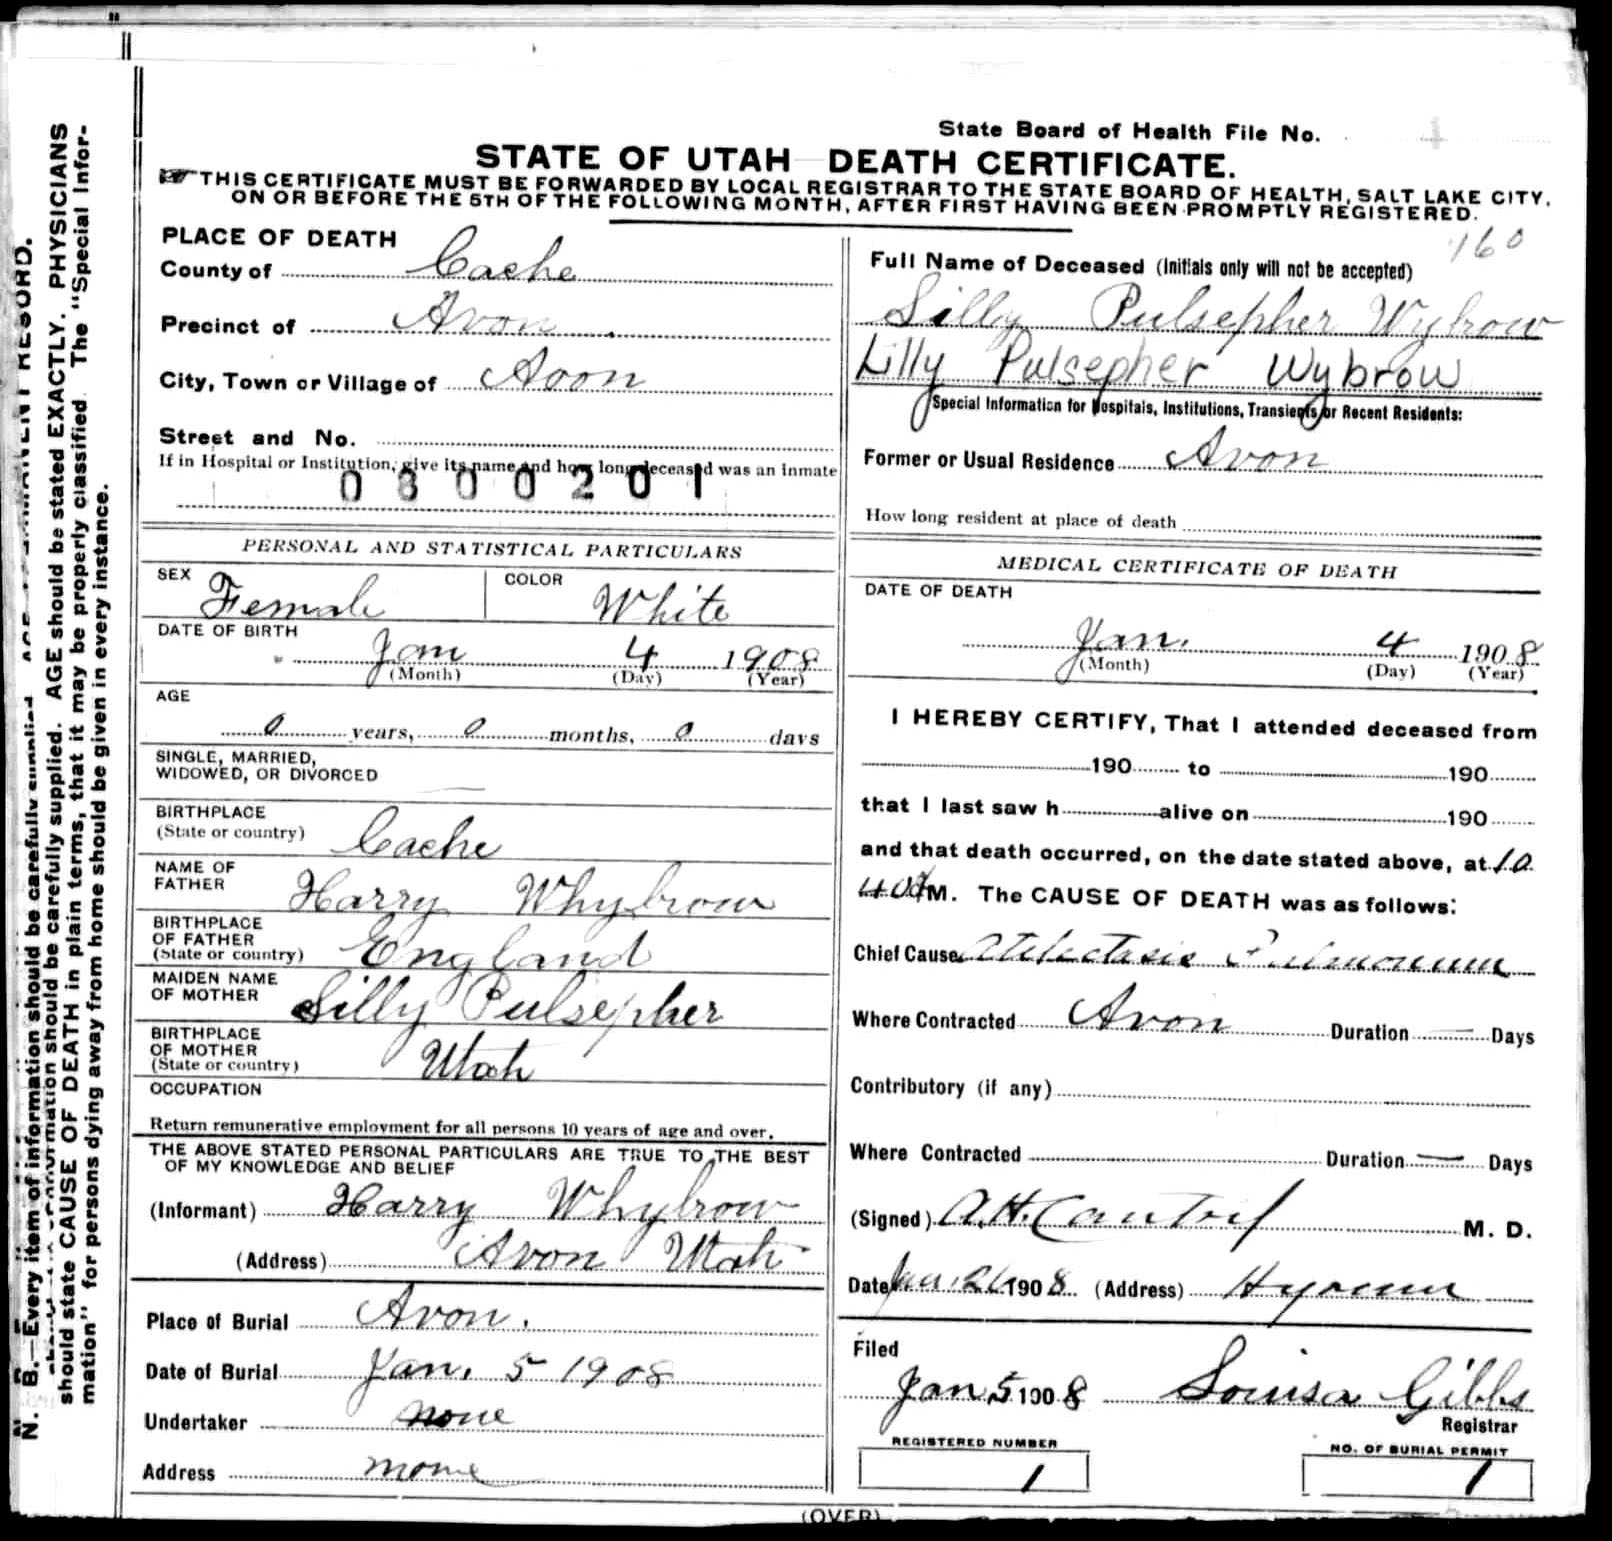 State Board of Health File No. 1
STATE OF UTAH DEATH CERTIFICATE.
THIS CERTIFICATE MUST BE FORWARDED BY LOCAL REGISTRAR TO THE STATE BOARD OF HEALTH, SALT LAKE CITY,
ON OR BEFORE THE 5TH OF THE FOLLOWING MONTH, AFTER FIRST HAVING BEEN PROMPTLY REGISTERED.
PLACE OF DEATH
County of Cache
Precinct of Avon
City, Town or Village of Avon
Street and No.
If in Hospital or Institution, give its name and how long deceased was an inmate
0300201
PERSONAL AND STATISTICAL PARTICULARS
SEX Female COLOR White
DATE OF BIRTH
Jan 4 1908
(Month) (Day) (Year)
AGE
0 years, 0 months, 0 days
SINGLE, MARRIED,
WIDOWED, OR DIVORCED
BIRTHPLACE
(State or country) Cache
NAME OF
FATHER Harry Whybrow
BIRTHPLACE
OF FATHER
(State or country) England
MAIDEN NAME
OF MOTHER Lilly Pulsepher
BIRTHPLACE
OF MOTHER
(State or country) Utah
OCCUPATION
Return remunerative employment for all persons 10 years of age and over.
THE ABOVE STATED PERSONAL PARTICULARS ARE TRUE TO THE BEST
OF MY KNOWLEDGE AND BELIEF
(Informant) Harry Whybrow
(Address) Avon Utah
Place of Burial Avon.
Date of Burial Jan. 5 1908
Undertaker none
Address none
160
Full Name of Deceased (Initials only will not be accepted)
Lilly Pulsepher Wybrow
Lilly Pulsepher Wybrow
Special Information for Hospitals, Institutions, Transients or Recent Residents:
Former or Usual Residence Avon
How long resident at place of death
MEDICAL CERTIFICATE OF DEATH
DATE OF DEATH
Jan. 4 1908
(Month) (Day) (Year)
I HEREBY CERTIFY, That I attended deceased from
190 to 190
that I last saw h alive on 190
and that death occurred, on the date stated above, at 10
40 M. The CAUSE OF DEATH was as follows:
Chief Cause Atelectasis Pulmonum
Where Contracted Avon Duration — Days
Contributory (if any)
Where Contracted Duration — Days
(Signed) A.H. Cantril M. D.
Date Jan. 1908 (Address) Hyrum
Filed
Jan 5 1908 Louisa Gibbs
Registrar
REGISTERED NUMBER
1
NO. OF BURIAL PERMIT
1
(OVER)
N. B.—Every item of information should be carefully supplied. AGE should be stated EXACTLY. PHYSICIANS
should state CAUSE OF DEATH in plain terms, that it may be properly classified. The "Special Infor-
mation" for persons dying away from home should be given in every instance.